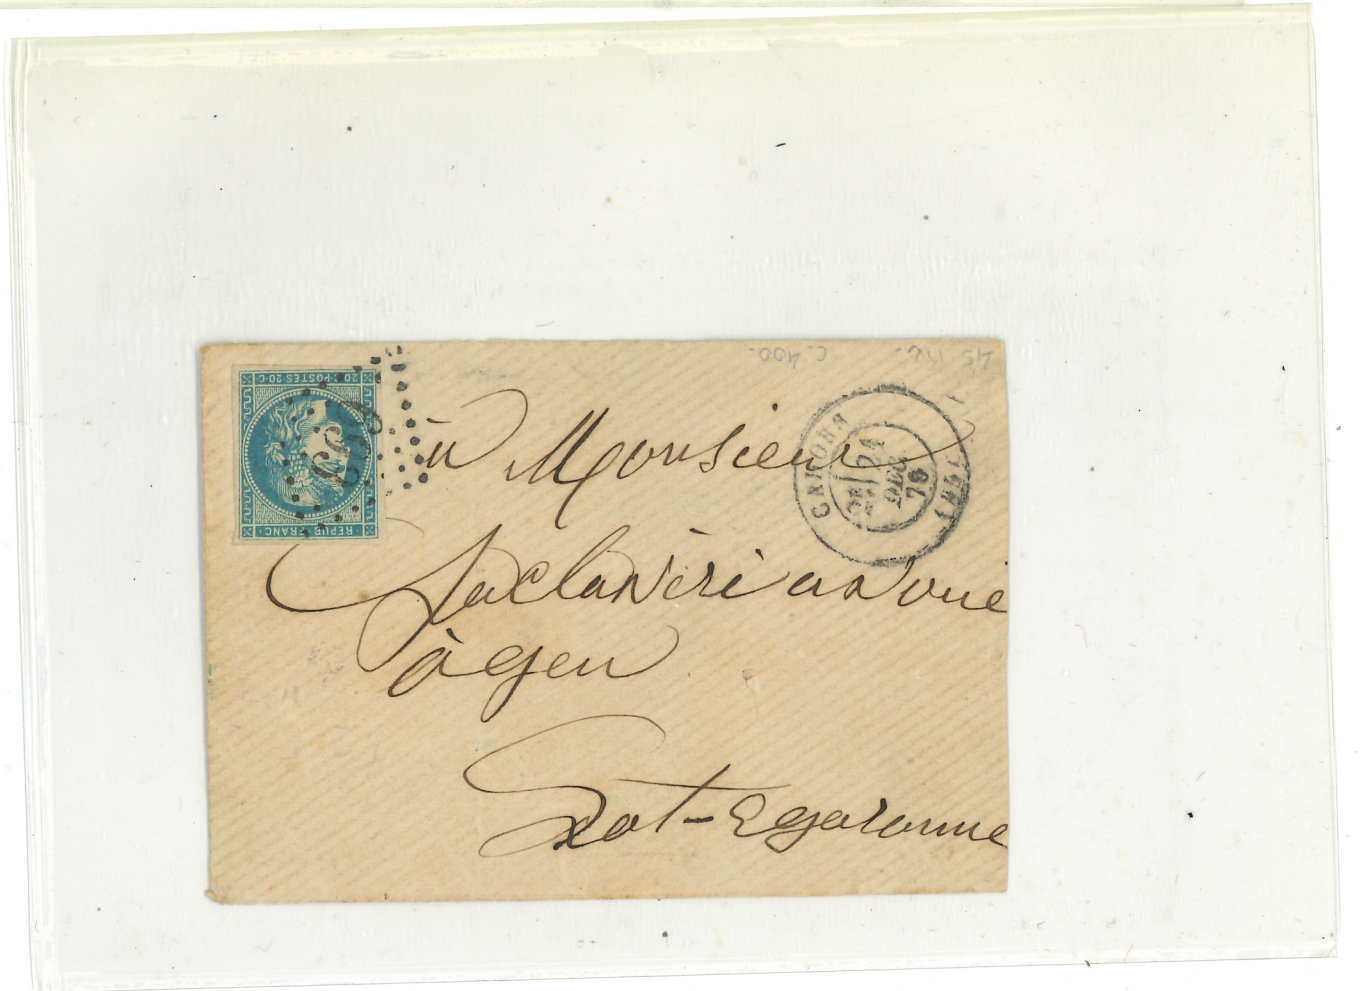 45 R2. C. 400.
20·C·POSTES·20·C·
REPUB·FRANC·
CAHORS
2E
24
DEC
70
(44)
à Monsieur
Laclaverie avoué
à agen
Lot-Egaronne